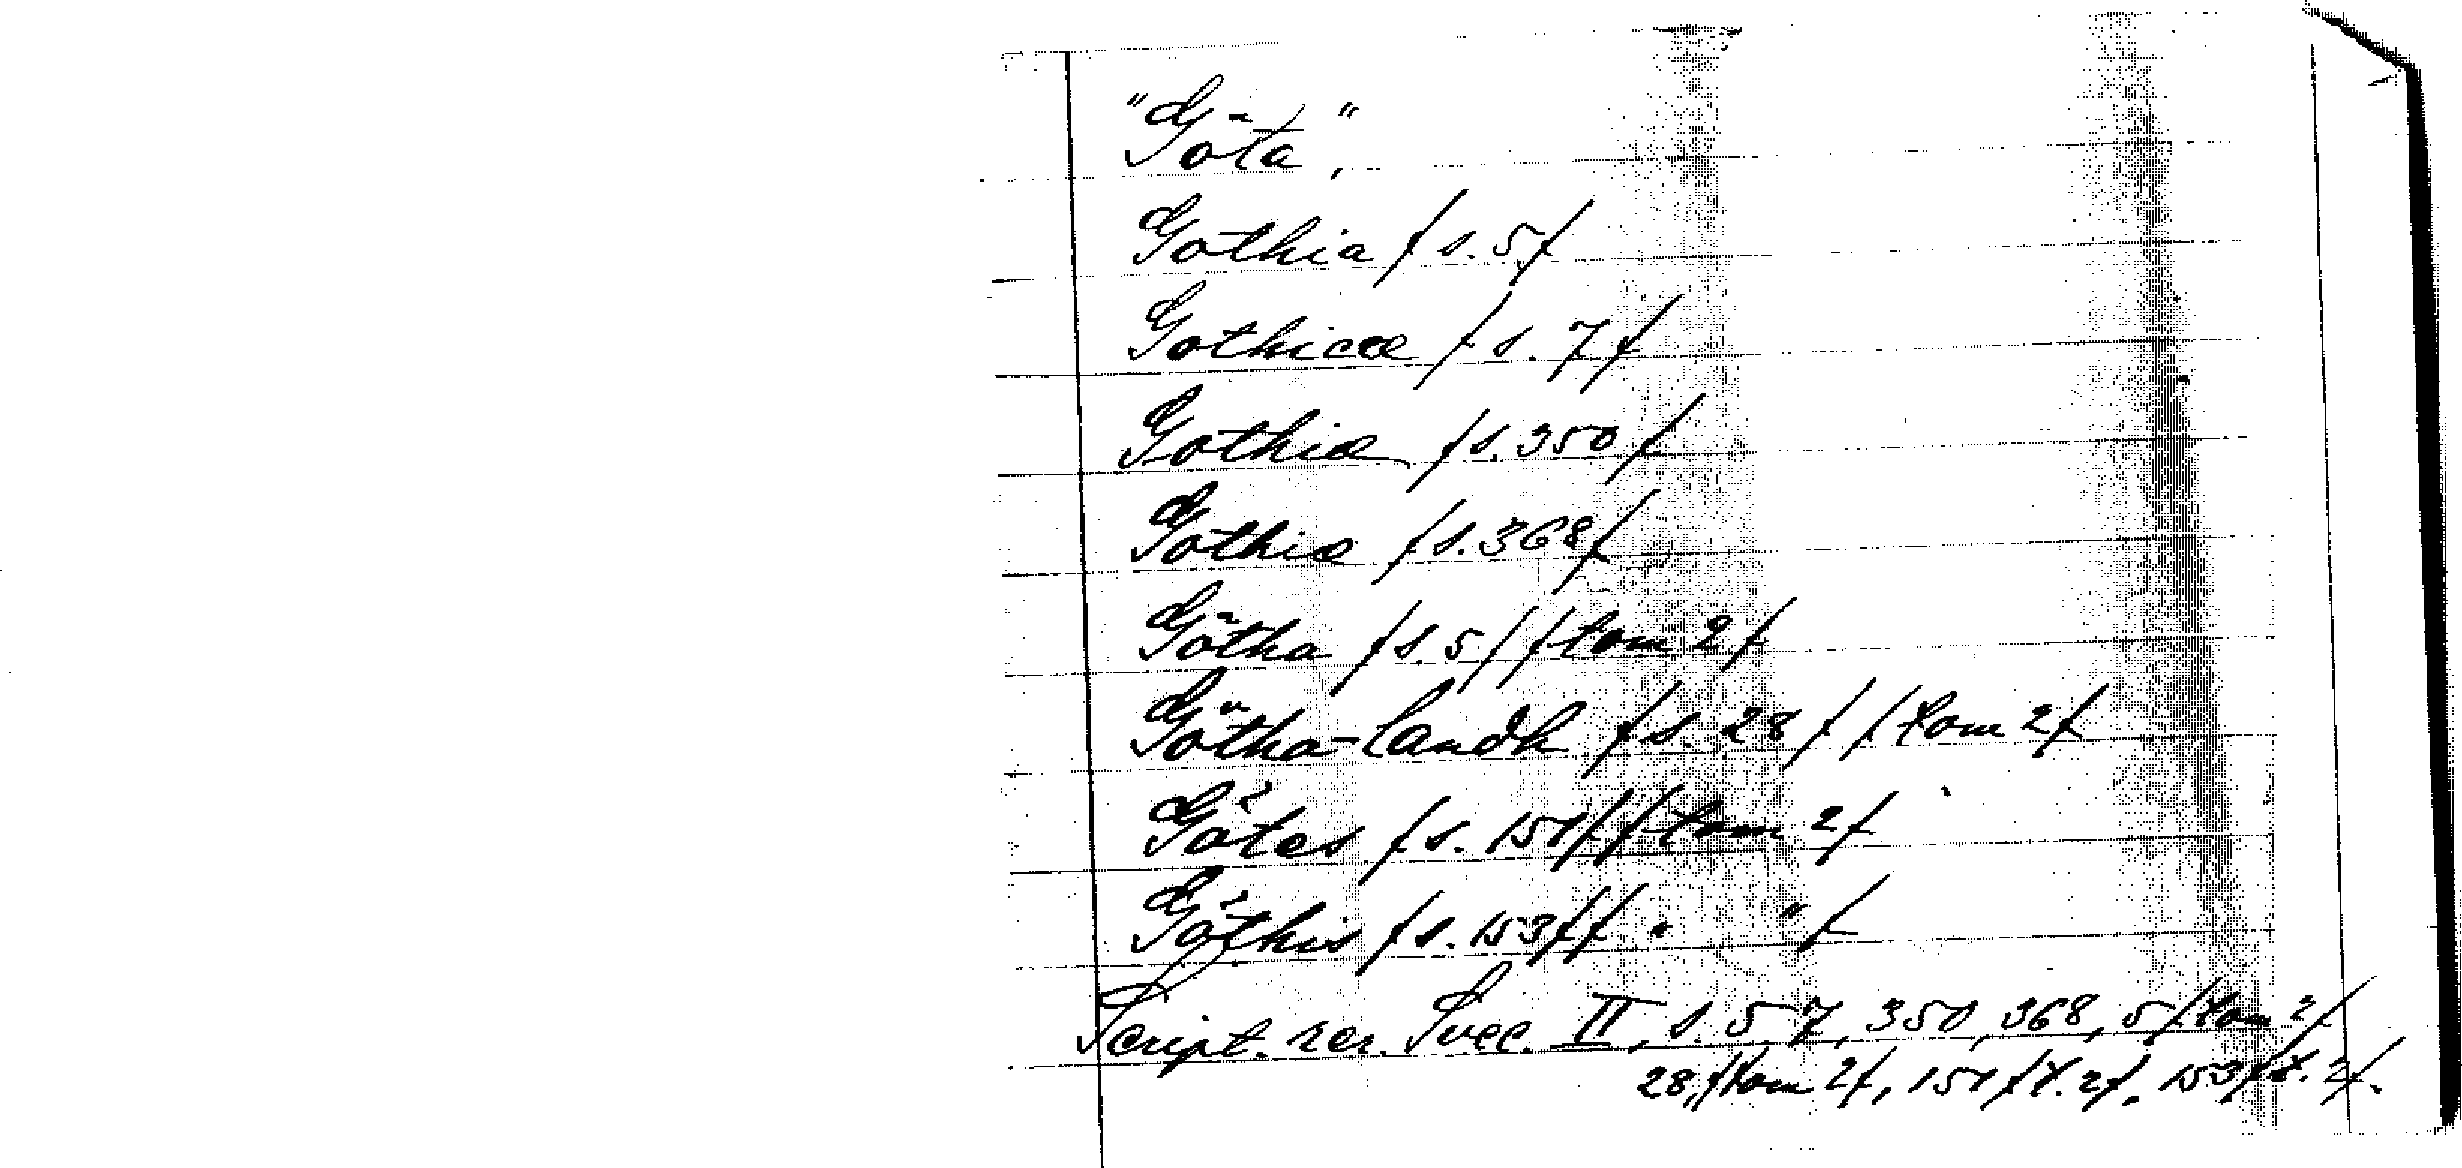 "Göta",
Gothia /s. 5/
Gothicæ /s. 7/
Gothiæ /s. 350/
Gothiæ /s. 368/
Götha /s. 5/ /tom 2/
Götha-landh /s. 28/ /tom 2/
Götes /s. 151/ /tom 2/
Göthis /s. 153/ / " " /
Script. rer. Svec. II, s. 5, 7, 350, 368, 5 /tom 2/
28, /tom 2/, 151 /t. 2/, 153 /t. 2/.